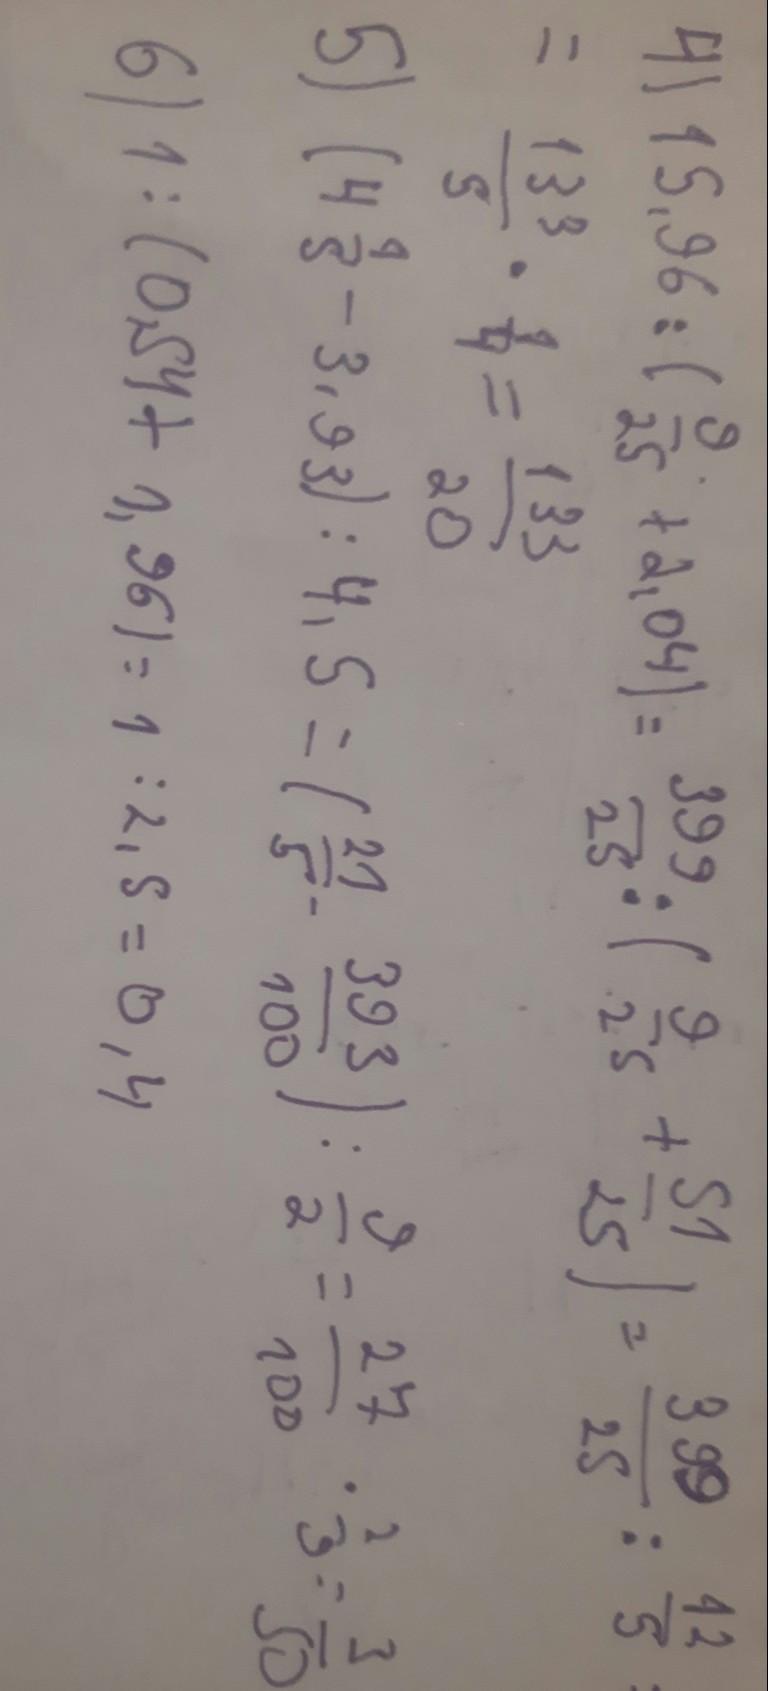 4) 15,96 : (9/25 + 2,04) = 399/25 : (9/25 + 51/25) = 399/25 : 12/5 =
= 133/5 · 1/4 = 133/20
5) (4 1/5 - 3,93) : 4,5 = (21/5 - 393/100) : 9/2 = 27/100 · 2/9 = 3/50
6) 1 : (0,54 + 1,96) = 1 : 2,5 = 0,4